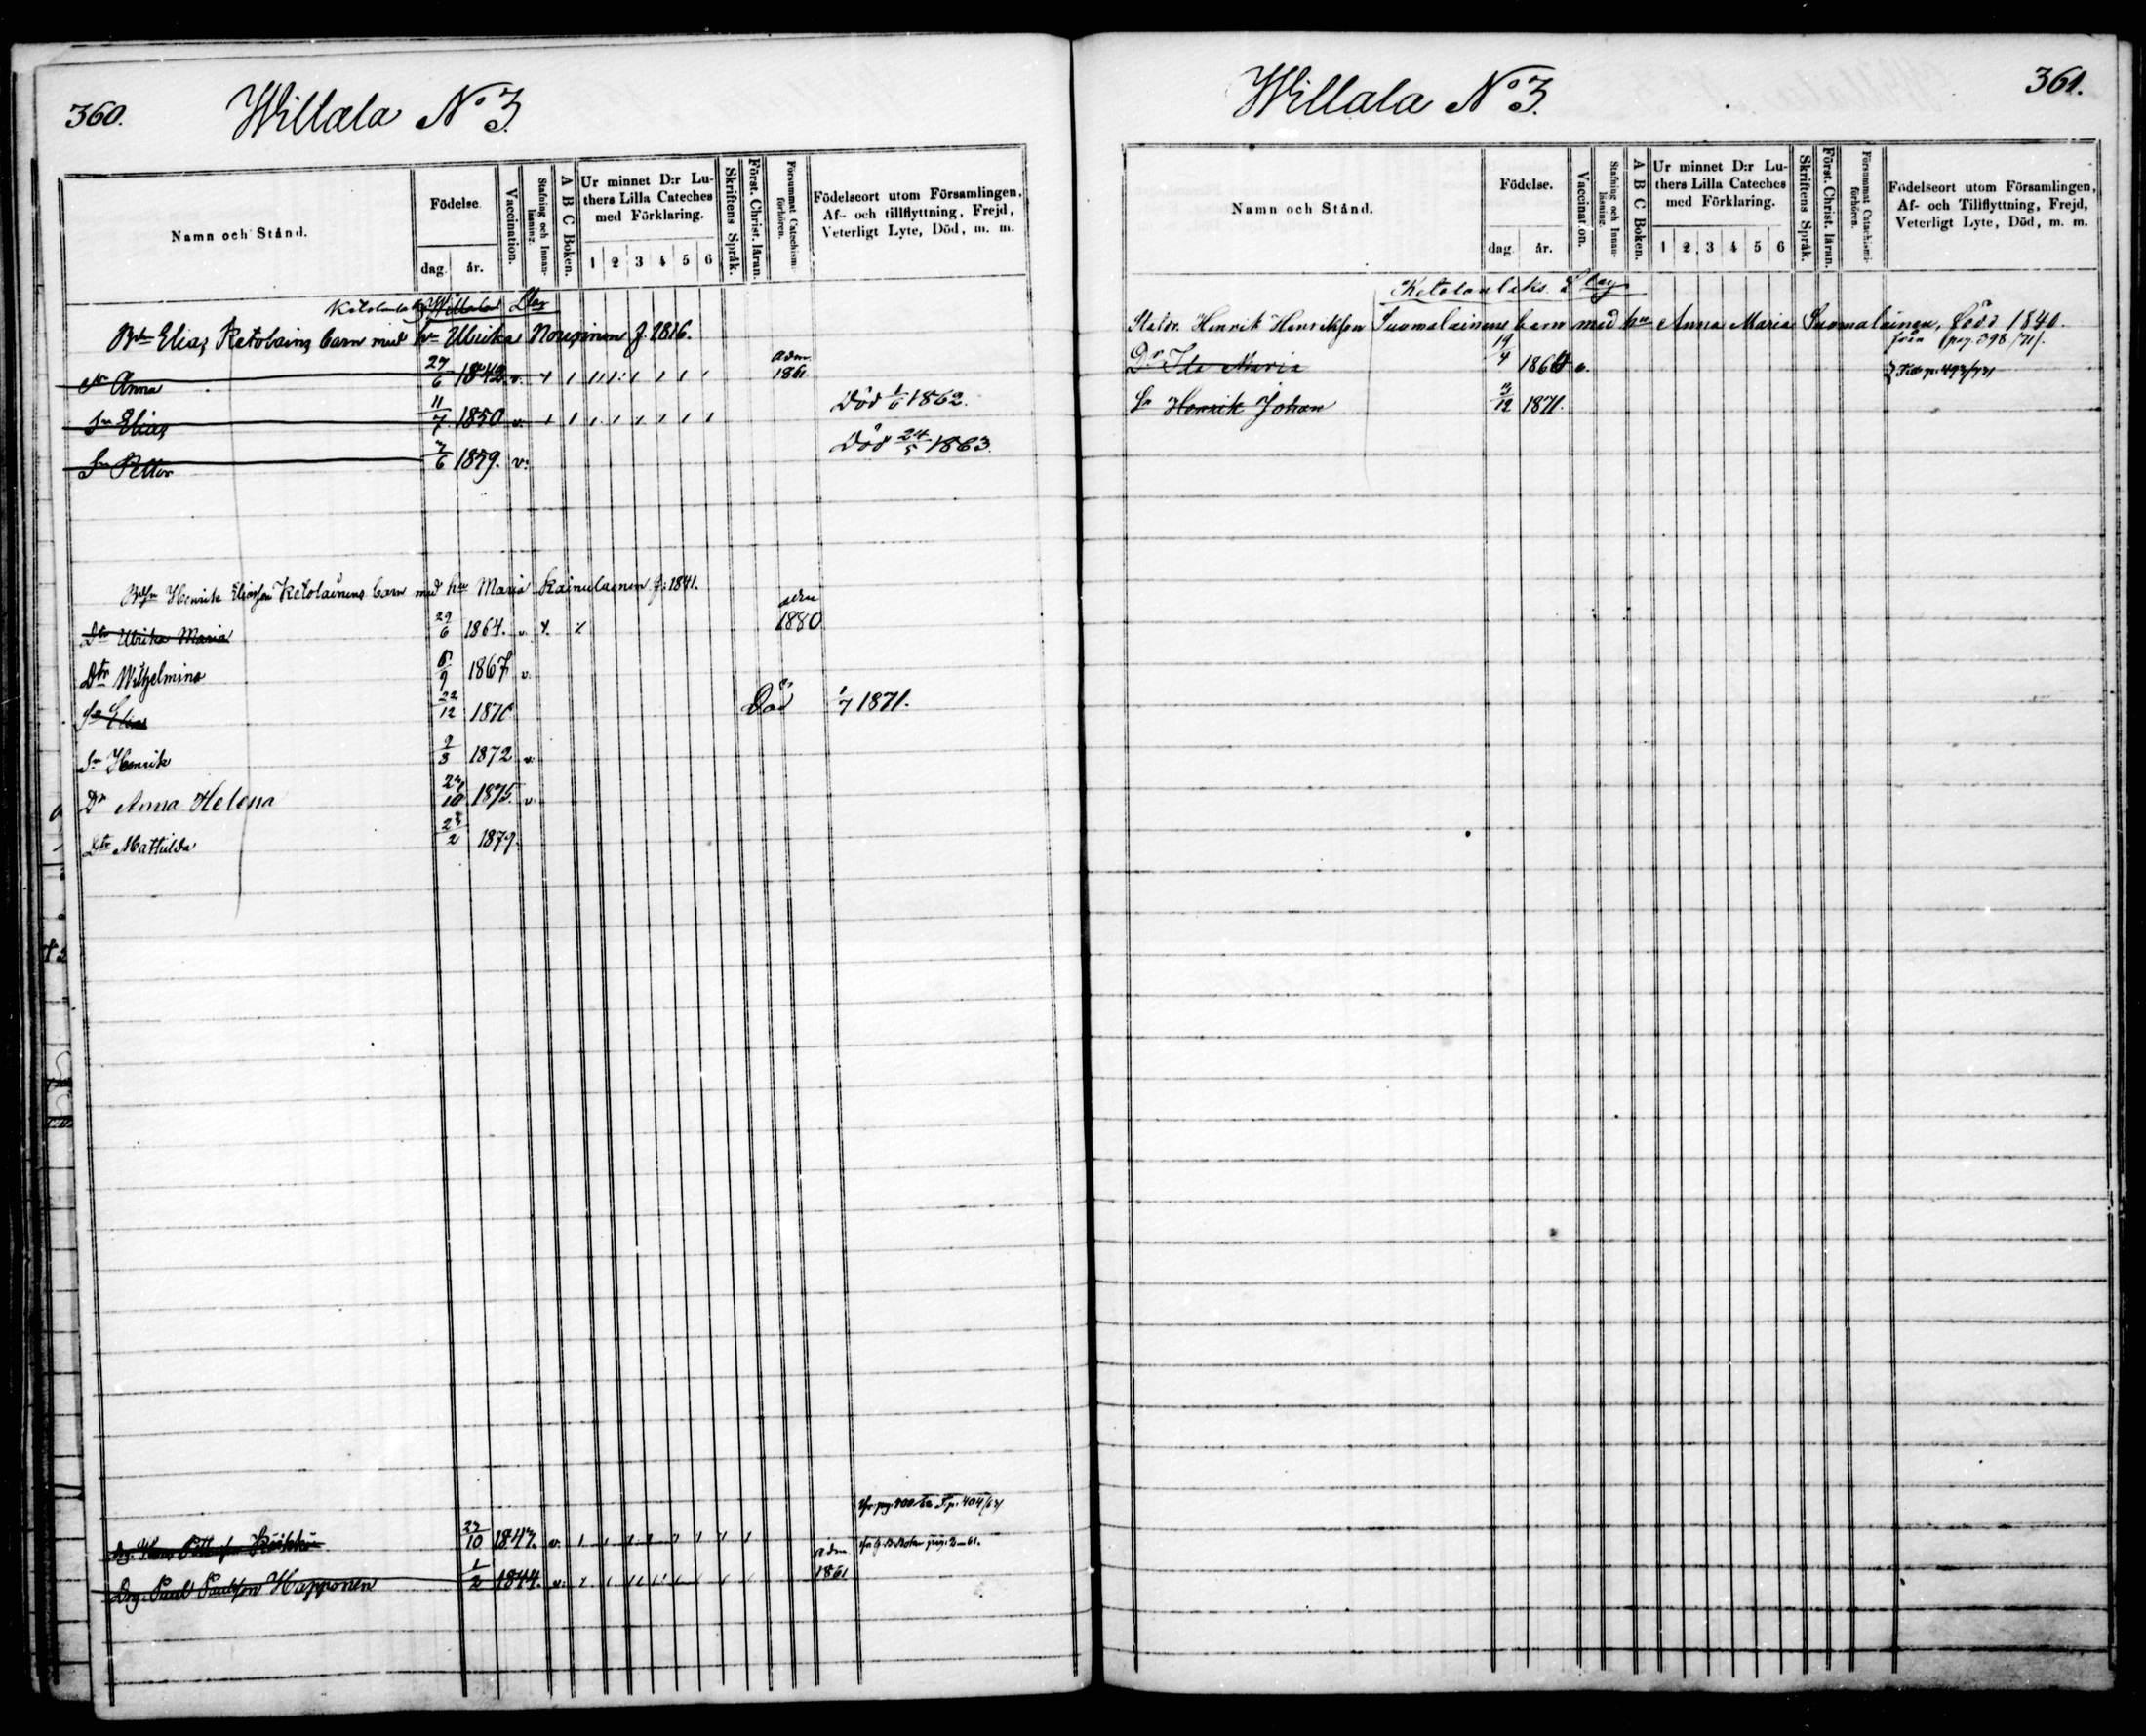 360.
Willala No 3.
Namn och Stånd.
Födelse
dag. år.
Vaccination.
Stafning och Innan-läsning.
A B C Boken.
Ur minnet D:r Lu-
thers Lilla Cateches
med Förklaring.
1 2 3 4 5 6
Skriftens Språk.
Först. Christ. läran.
Försummat Catechismi-förhören.
Födelseort utom Församlingen,
Af- och tillflyttning, Frejd,
Veterligt Lyte, Död, m. m.
Willala
Bdn Elias Ketolains barn med hu Ulrika f. 1816.
Dr Anna 27/6 1842 v. adm. 1861.
Sn Elias 11/7 1850 v. Död 1/6 1862.
Sn Petter 7/6 1859. v. Död 24/5 1863.
Henrik Eliasson Ketolainens barn med hu Maria Kainulainen f. 1841.
Dtr Ulrika Maria 29/6 1864. v. adm 1880
Dtr Wilhelmina 6/9 1867 v.
Sn Elias 22/12 1870. Död 1/7 1871.
Sn Henrik 2/3 1872 v.
Dr Anna Helena 27/10 1875. v.
Dtr Mathilda 23/2 1879.
23/10 1847. v.
Drg. Paul Paulsson Happonen 1/2 1844. v. adm 1861
361.
Willala No 3.
Namn och Stånd.
Födelse.
dag. år.
Vaccination.
Stafning och Innan-läsning.
A B C Boken.
Ur minnet D:r Lu-
thers Lilla Cateches
med Förklaring.
1 2 3 4 5 6
Skriftens Språk.
Först. Christ. läran.
Försummat Catechismi-förhören.
Födelseort utom Församlingen,
Af- och Tillflyttning, Frejd,
Veterligt Lyte, Död, m. m.
Henrik Henriksson Suomalainens barn med hu Anna Maria Suomalainen, född 1840.
från pag. 398/71.
Dr Ida Maria 19/4 1864 v.
Sn Henrik Johan 3/12 1871.